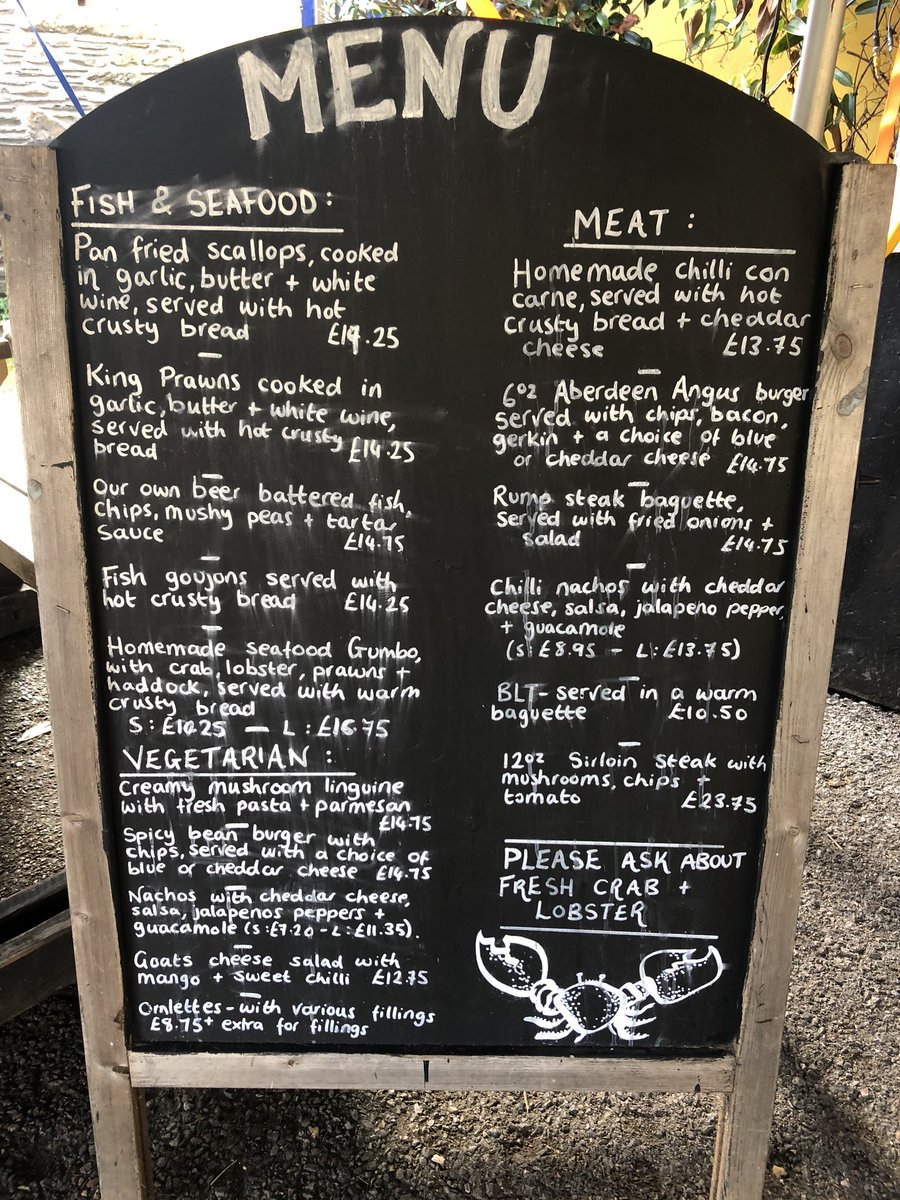 MENU
FISH & SEAFOOD:
Pan fried scallops, cooked
in garlic, butter + white
wine, served with hot
crusty bread £14.25
King Prawns cooked in
garlic, butter + white wine,
served with hot crusty
bread £14.25
Our own beer battered fish,
chips, mushy peas + tartar
sauce £14.75
Fish goujons served with
hot crusty bread £14.25
Homemade seafood Gumbo,
with crab, lobster, prawns +
haddock, served with warm
crusty bread
S: £10.25 - L: £16.75
VEGETARIAN:
Creamy mushroom linguine
with fresh pasta + parmesan
£14.75
Spicy bean burger with
chips, served with a choice of
blue or cheddar cheese £14.75
Nachos with cheddar cheese,
salsa, jalapenos peppers +
guacamole (S:£7.20 - L:£11.35).
Goats cheese salad with
mango + sweet chilli £12.75
Omlettes - with various fillings
£8.75 + extra for fillings
MEAT:
Homemade chilli con
carne, served with hot
crusty bread + cheddar
cheese £13.75
6oz Aberdeen Angus burger
served with chips, bacon,
gerkin + a choice of blue
or cheddar cheese £14.75
Rump steak baguette,
served with fried onions +
salad £14.75
Chilli nachos with cheddar
cheese, salsa, jalapeno pepper,
+ guacamole
(S:£8.95 - L:£13.75)
BLT - served in a warm
baguette £10.50
12oz Sirloin steak with
mushrooms, chips +
tomato £23.75
PLEASE ASK ABOUT
FRESH CRAB +
LOBSTER